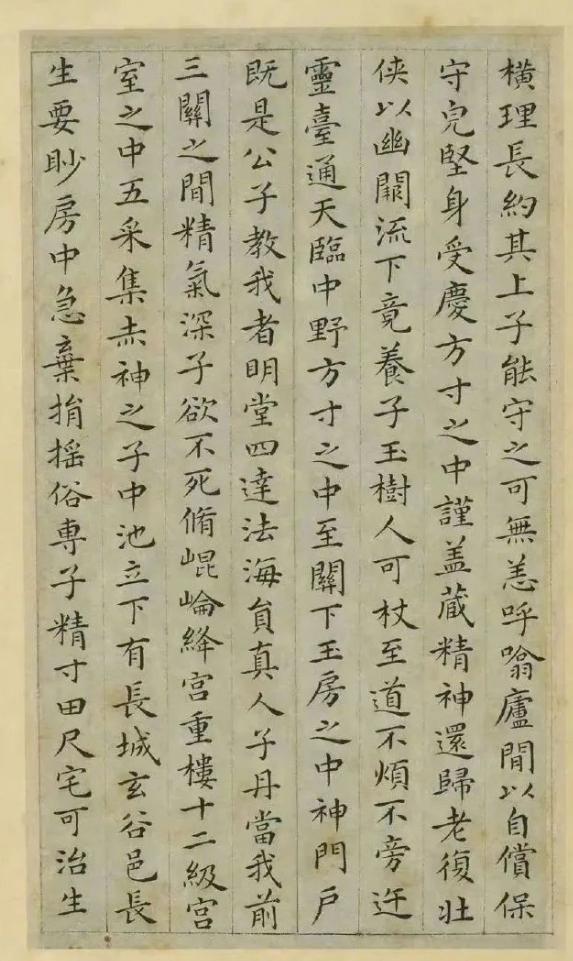 橫理長約其上子能守之可無恙呼噏廬閒以自償保
守皃堅身受慶方寸之中謹盖蔵精神還歸老復壯
侠以幽闕流下竟養子玉樹人可杖至道不煩不旁迕
靈臺通天臨中野方寸之中至關下玉房之中神門戶
既是公子教我者明堂四達法海員真人子丹當我前
三關之間精氣深子欲不死脩崐崘絳宫重樓十二級宫
室之中五采集赤神之子中池立下有長城玄谷邑長
生要眇房中急棄捐搖俗專子精寸田尺宅可治生